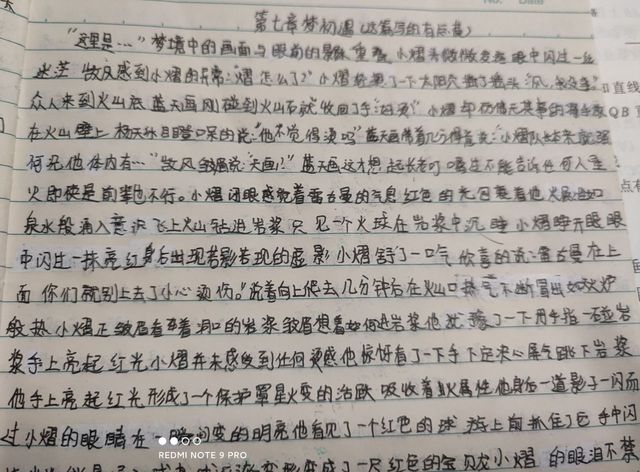 No. Date
第七章梦初遇(这篇写的有点差)
"这里是…"梦境中的画面与眼前的景象重叠 小熠头微微发疼 眼中闪过一丝
迷茫 牧风感到小熠的异常:"熠怎么了?"小熠轻 了一下太阳穴 摇了摇头"风,我没事"
众人来到火山底 蓝天画刚碰到火山石就收回了手"好烫!"小熠却仿佛无其事的将手放
在火山壁上 目瞪口呆的说:"他不觉得烫吗"蓝天画带着几分得意说:"小熠队长本来就强
何况他体内有…"牧风 说:"天画!?"蓝天画这才想起长老叮嘱过不能告诉任何人圣
火即使是前辈也不行。小熠闭眼感觉着雷古曼的气息 红色的光包裹着他 火晶如
泉水般涌入意识飞上火山钻进岩浆 只见一个火球在岩浆中沉睡 小熠睁开眼眼
中闪过一抹亮红 身后出现若影若现的虚影 小熠舒了一口气 欣喜的说:"雷古曼在上
面 你们就别上去了小心烫伤。"说着向上爬去几分钟后在火山口 热气不断冒出如火炉
般热 小熠正皱眉看着洞口的岩浆 皱眉想着如何进岩浆 他犹豫了一下用手指一碰岩
浆手上亮起红光 小熠并未感受到任何烫感 他惊讶看了一下手 下定决心屏气跳下岩浆
他手上亮起红光形成了一个保护罩 星火变的活跃 吸收着火属性 他身后一道影子一闪而
过 小熠的眼睛在一瞬间变的明亮 他看见了一个红色的球 游上前抓住了它 手中闪
变成了一只红色的宝贝龙 小熠的眼泪不禁
REDMI NOTE 9 PRO
直线
QB
点有